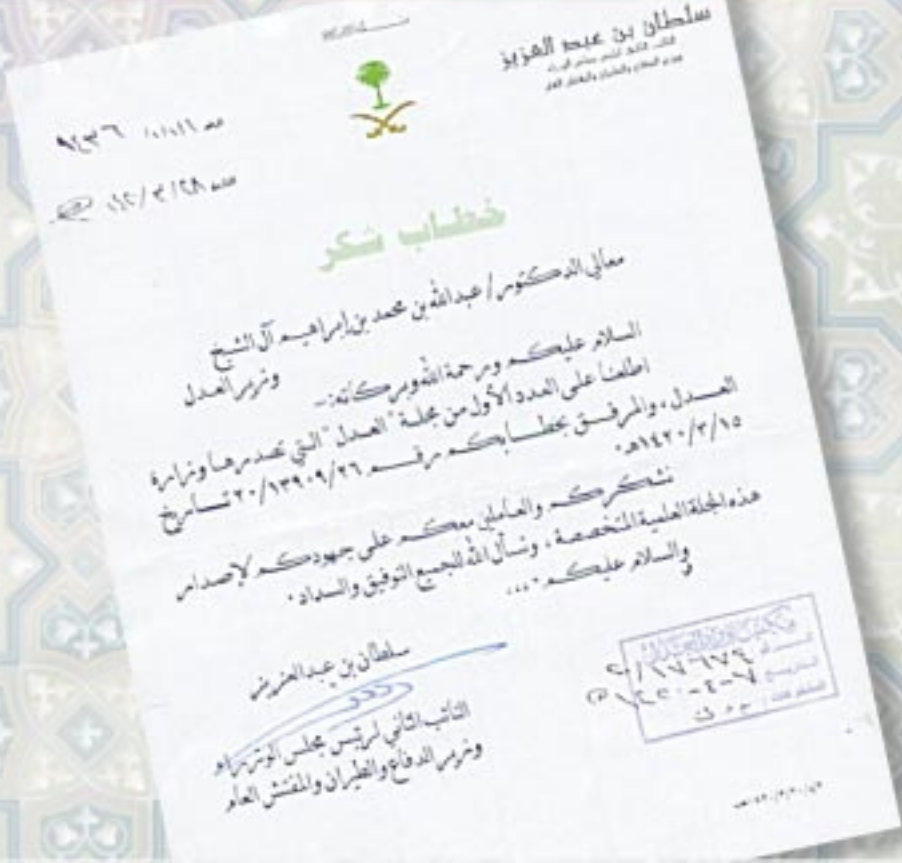 سلطان بن عبد العزيز
النائب الثاني لرئيس مجلس الوزراء
وزير الدفاع والطيران والمفتش العام
خطاب شكر
معالي الدكتور / عبدالله بن محمد بن إبراهيم آل الشيخ
وزير العدل
السلام عليكم ورحمة الله وبركاته :ــ
اطلعنا على العدد الأول من مجلة " العدل " التي تصدرها وزارة
العدل ، والمرفق بخطابكم رقم ٢٠/١٣٩٠٩/٢٦ تاريخ
١٤٢٠/٣/١٥هـ٠
نشكركم والعاملين معكم على جهودكم لإصدار
هذه المجلة العلمية المتخصصة ، ونسأل الله للجميع التوفيق والسداد ٠
والسلام عليكم ٠،،،
سلطان بن عبدالعزيز
النائب الثاني لرئيس مجلس الوزراء
ووزير الدفاع والطيران والمفتش العام